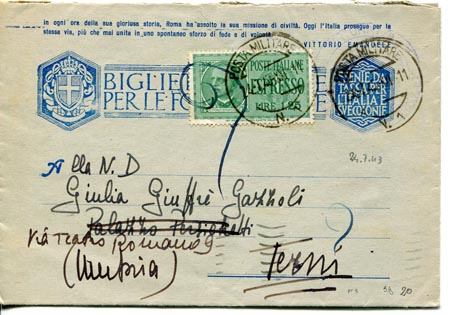 in ogni ora della sua gloriosa storia, Roma ha assolto la sua missione di civiltà. Oggi l'Italia prosegue per la
stessa via, più che mai unita in uno spontaneo sforzo di fede e di volontà.
VITTORIO EMANUELE
BIGLIE
PER LE FO
POSTE ITALIANE
ESPRESSO
LIRE 1,25
POSTA MILITARE
N.
POSTA MILITARE
11
V. 1
ENTE DA
TASSA PER
L'ITALIA E
SVE COLONIE
24.7.43
Alla N.D
Giulia Giuffrè Gazzoli
Palazzo
Via Teatro Romano 9
(Umbria)
Terni
20